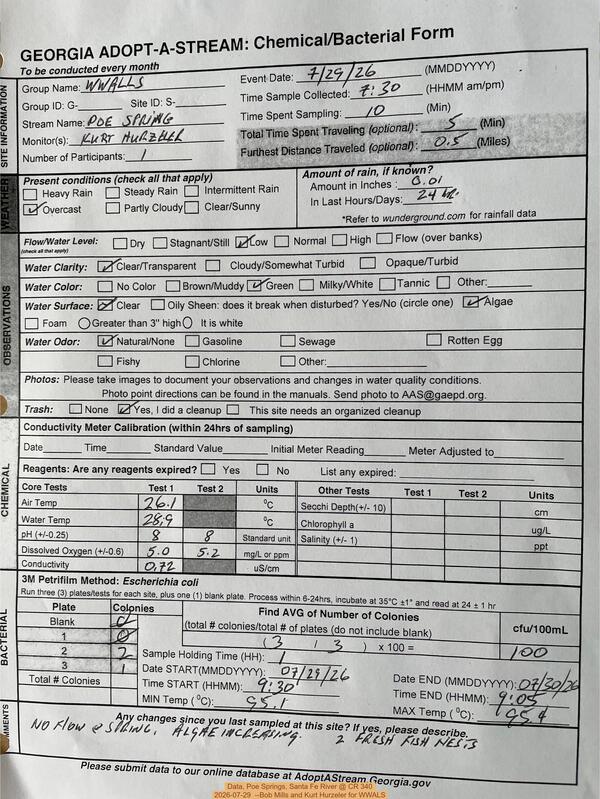 GEORGIA ADOPT-A-STREAM: Chemical/Bacterial Form
To be conducted every month
SITE INFORMATION
Group Name: WWALLS
Group ID: G- Site ID: S-
Stream Name: POE SPRING
Monitor(s): KURT HURZELER
Number of Participants: 1
Event Date: 7/29/26 (MMDDYYYY)
Time Sample Collected: 7:30 (HHMM am/pm)
Time Spent Sampling: 10 (Min)
Total Time Spent Traveling (optional): 5 (Min)
Furthest Distance Traveled (optional): 0.5 (Miles)
WEATHER
Present conditions (check all that apply)
Heavy Rain Steady Rain Intermittent Rain
Overcast Partly Cloudy Clear/Sunny
Amount of rain, if known?
Amount in Inches: 0.01
In Last Hours/Days: 24 hr.
*Refer to wunderground.com for rainfall data
OBSERVATIONS
Flow/Water Level: Dry Stagnant/Still Low Normal High Flow (over banks)
(check all that apply)
Water Clarity: Clear/Transparent Cloudy/Somewhat Turbid Opaque/Turbid
Water Color: No Color Brown/Muddy Green Milky/White Tannic Other:
Water Surface: Clear Oily Sheen: does it break when disturbed? Yes/No (circle one) Algae
Foam Greater than 3" high It is white
Water Odor: Natural/None Gasoline Sewage Rotten Egg
Fishy Chlorine Other:
Photos: Please take images to document your observations and changes in water quality conditions.
Photo point directions can be found in the manuals. Send photo to AAS@gaepd.org.
Trash: None Yes, I did a cleanup This site needs an organized cleanup
CHEMICAL
Conductivity Meter Calibration (within 24hrs of sampling)
Date Time Standard Value Initial Meter Reading Meter Adjusted to
Reagents: Are any reagents expired? Yes No List any expired:
Core Tests Test 1 Test 2 Units Other Tests Test 1 Test 2 Units
Air Temp 26.1 °C Secchi Depth(+/- 10) cm
Water Temp 28.9 °C Chlorophyll a ug/L
pH (+/-0.25) 8 8 Standard unit Salinity (+/- 1) ppt
Dissolved Oxygen (+/-0.6) 5.0 5.2 mg/L or ppm
Conductivity 0.72 uS/cm
BACTERIAL
3M Petrifilm Method: Escherichia coli
Run three (3) plates/tests for each site, plus one (1) blank plate. Process within 6-24hrs, incubate at 35°C ±1° and read at 24 ± 1 hr
Plate Colonies
Blank 0
1 0
2 2
3 1
Total # Colonies
Find AVG of Number of Colonies
(total # colonies/total # of plates (do not include blank)
( 3 / 3 ) x 100 =
cfu/100mL
100
Sample Holding Time (HH): 1
Date START(MMDDYYYY): 07/29/26
Time START (HHMM): 9:30
MIN Temp (°C): 95.1
Date END (MMDDYYYY): 07/30/26
Time END (HHMM): 9:05
MAX Temp (°C): 95.4
COMMENTS
Any changes since you last sampled at this site? If yes, please describe.
NO FLOW @ SPRING. ALGAE INCREASING. 2 FRESH FISH NESTS
Please submit data to our online database at AdoptAStream.Georgia.gov
Data, Poe Springs, Santa Fe River @ CR 340
2026-07-29 --Bob Mills and Kurt Hurzeler for WWALS